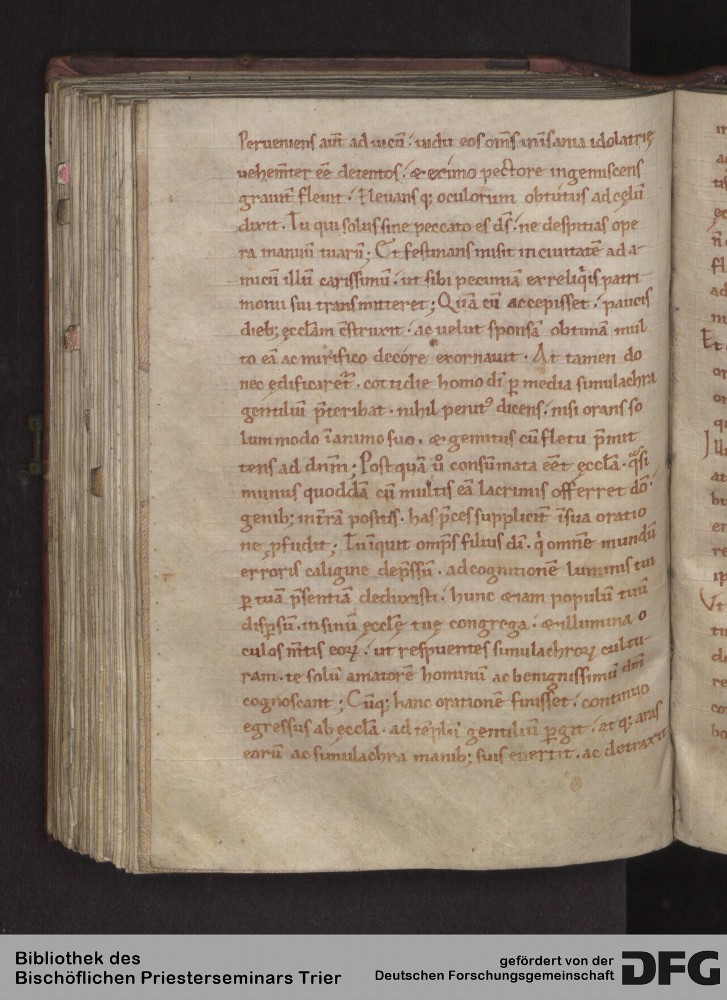 Perueniens aut̄ ad uicū · uidit eos om̄s in īsania idolatrię
uehem̄ter eē detentos · & ex imo pectore ingemiscens
grauit̄ fleuit · Eleuans q; oculorum obtutus ad cęlū
dixit · Tu qui solus sine peccato es d̄s · ne despitias ope
ra manuū tuarū; Et festinans misit in ciuitatē ad a-
micū illū carissimū · ut sibi pecuniā ex reliq̇is patri-
monii sui transmitteret; Quā cū accepisset · paucis
dieb; ęccl̄am c̄struxit · ac uelut sponsā obtimā mul
to eā ac mirifico decore exornauit · At tamen do
nec ędificaret᷑ · cottidie homo dī ꝑ media simulachra
gentiliū p̄teribat · nihil penitꝰ dicens · nisi orans so
lum modo ī animo suo · & gemitus cū fletu p̄mit
tens ad dnm̄; Post quā ů consūmata eēt ęccl̄a · q̄si
munus quoddā cū multis eā lacrimis offerret dō ·
genib; in t̄ra positis · has p̄ces suppliciť ī sua oratio
ne ꝓfudit; Tu inquit omp̄s filius dī · q̇ omnē mundū
erroris caligine dep̄ssū · ad cognitionē luminis tui
ꝑ tuā p̄sentiā deduxisti · hunc &iam populū tuū
disp̄sū · in sinū ęccl̄ę tuę congrega · & illumina o
culos m̄tis eoꝝ · ut respuentes simulachroꝝ cultu-
ram · te solū amatorē hominū ac benignissimū dn̄m
cognoscant; Cūq; hanc orationē finisset · continuo
egressus ab ęccl̄a · ad tēplū gentiliū ꝑgit · at q; aras
eorū ac simulachra manib; suis euertit · ac detraxit
Bibliothek des
Bischöflichen Priesterseminars Trier
gefördert von der
Deutschen Forschungsgemeinschaft
DFG